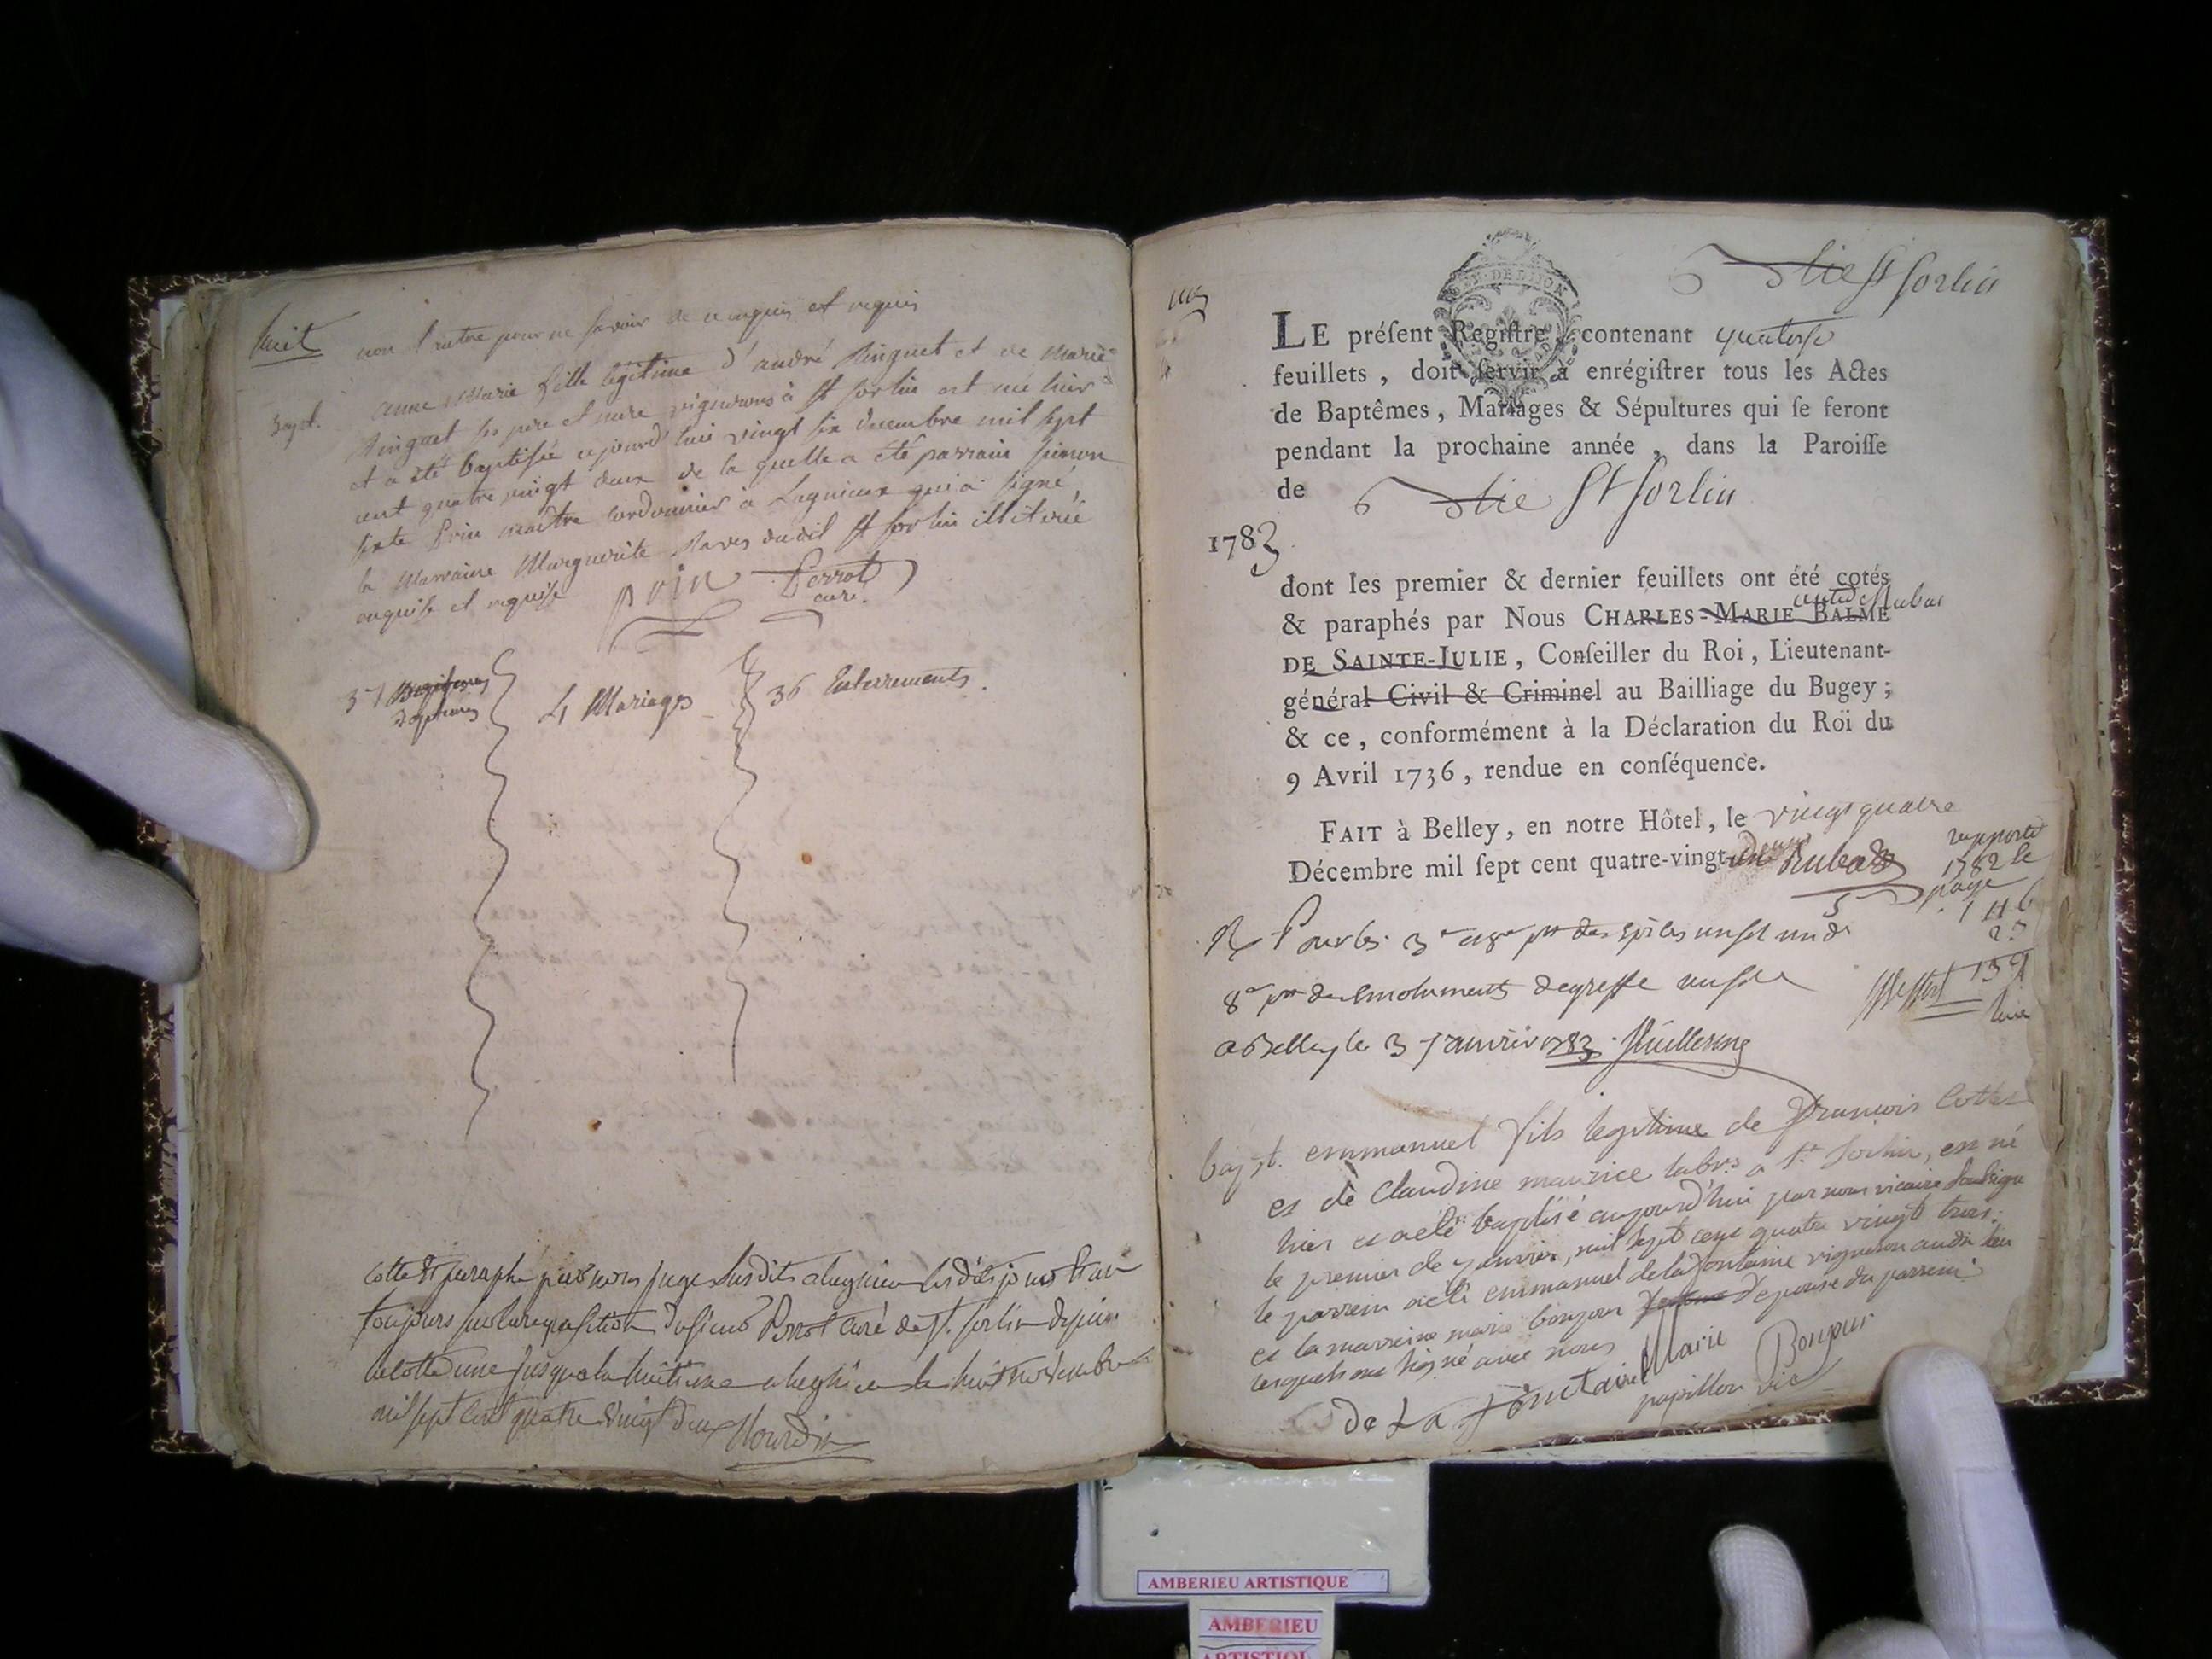 huit
non l'autre pour ne savoir de ce enquis et requis
Bapt. anne Marie fille légitime d'andré Ringuet et de Marie
Ringuet ses pere et mere vignerons à St sorlin est née hier
et a été baptisée ce jourd'hui vingt six decembre mil sept
cent quatre vingt deux de la quelle a été parrain simon
maître cordonnier à Lagnieux qui a signé,
la Marraine Marguerite dudit St sorlin illiterée
enquise et requise
Perrot
curé.
37 Baptemes
4 Mariages
36 Enterrements.
Cotté & paraphé par nous juge susdit a lagnieu
toujours sur la requisition du sieur Perrot curé de St. sorlin depuis
la cotte une jusqu'a la huitieme a lagnieu le huit novembre
mil sept cent quatre vingt deux
St Sorlin
COM · DE DIJON
LE préſent Regiſtre, contenant quatorse
feuillets, doit ſervir à enrégiſtrer tous les Actes
de Baptêmes, Mariages & Sépultures qui ſe feront
pendant la prochaine année, dans la Paroiſſe
de St Sorlin
1783
dont les premier & dernier feuillets ont été cotés
& paraphés par Nous CHARLES-MARIE BALME
DE SAINTE-JULIE, Conſeiller du Roi, Lieutenant-
général Civil & Criminel au Bailliage du Bugey;
& ce, conformément à la Déclaration du Roi du
9 Avril 1736, rendue en conſéquence.
FAIT à Belley, en notre Hôtel, le vingt quatre
Décembre mil ſept cent quatre-vingt-deux Rubat
rapporté
1782 le
page
R Pour les 3
8 emoluments de greffe
a Belley le 3 Janvier 1783
bapt. emmanuel fils legitime de François Cottet
et de Claudine maurice labrs a St Sorlin, est né
hier et a été baptisé aujourd'hui par nous vicaire soussigné
le premier de janvier, mil sept cent quatre vingt trois.
le parrein a été emmanuel de la fontaine vigneron audit lieu
et la marreine marie bonjour epouse du parrein
lesquels ont signé avec nous
de La Fonctaine Marie Bonjour
papillon vic
AMBERIEU ARTISTIQUE
AMBERIEU
ARTISTIQUE